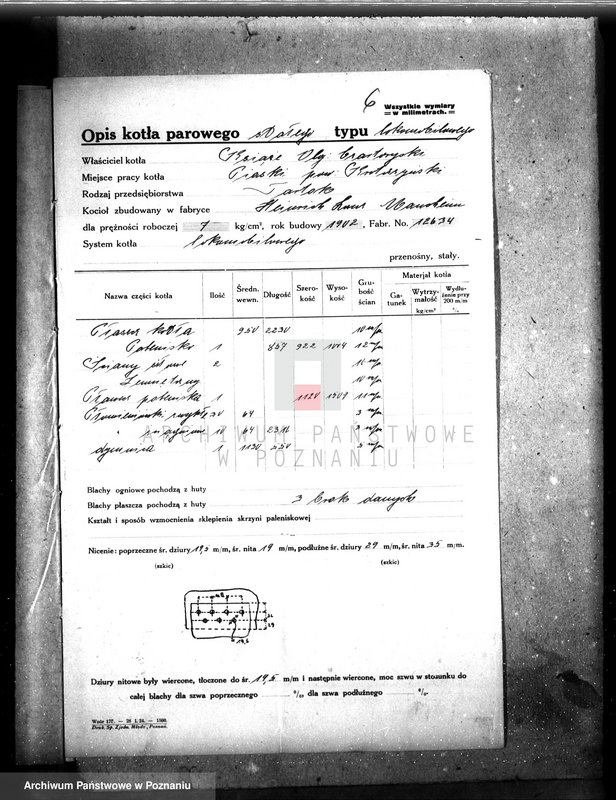 6
Wszystkie wymiary
= w milimetrach. =
Opis kotła parowego stałego typu lokomobilowego
Właściciel kotła Książe Olg. Czartoryski
Miejsce pracy kotła Piaski pow.
Rodzaj przedsiębiorstwa Tartak
Kocioł zbudowany w fabryce Heinrich Lanz Mannheim
dla prężności roboczej 7 kg/cm², rok budowy 1902, Fabr. No. 12634
System kotła lokomobilowego
przenośny, stały.
Nazwa części kotła Ilość Średn. wewn. Długość Szerokość Wysokość Grubość ścian Materjał kotła
Gatunek Wytrzymałość kg/cm² Wydłużenie przy 200 m/m %
Płaszcz kotła 950 2230 10 m/m
Palenisko 1 857 922 1004 12 m/m
Ściany 2
10 m/m
1 1120 1309 11 m/m
Płomieniówki 30 64 3 m/m
" 10 64
dymnica 1 1130 550
ARCHIWUM PAŃSTWOWE
W POZNANIU
Blachy ogniowe pochodzą z huty
Blachy płaszcza pochodzą z huty brak danych
Kształt i sposób wzmocnienia sklepienia skrzyni paleniskowej
Nicenie: poprzeczne śr. dziury 19,5 m/m, śr. nita 19 m/m, podłużne śr. dziury 29 m/m, śr. nita 35 m/m.
(szkic) (szkic)
19,5
Dziury nitowe były wiercone, tłoczone do śr. 19,5 m/m i następnie wiercone, moc szwu w stosunku do
całej blachy dla szwa poprzecznego %, dla szwa podłużnego %.
Wzór 177. — 28 1.24. — 1000.
Druk. Sp. Zjedn. Młodz., Poznań.
Archiwum Państwowe w Poznaniu